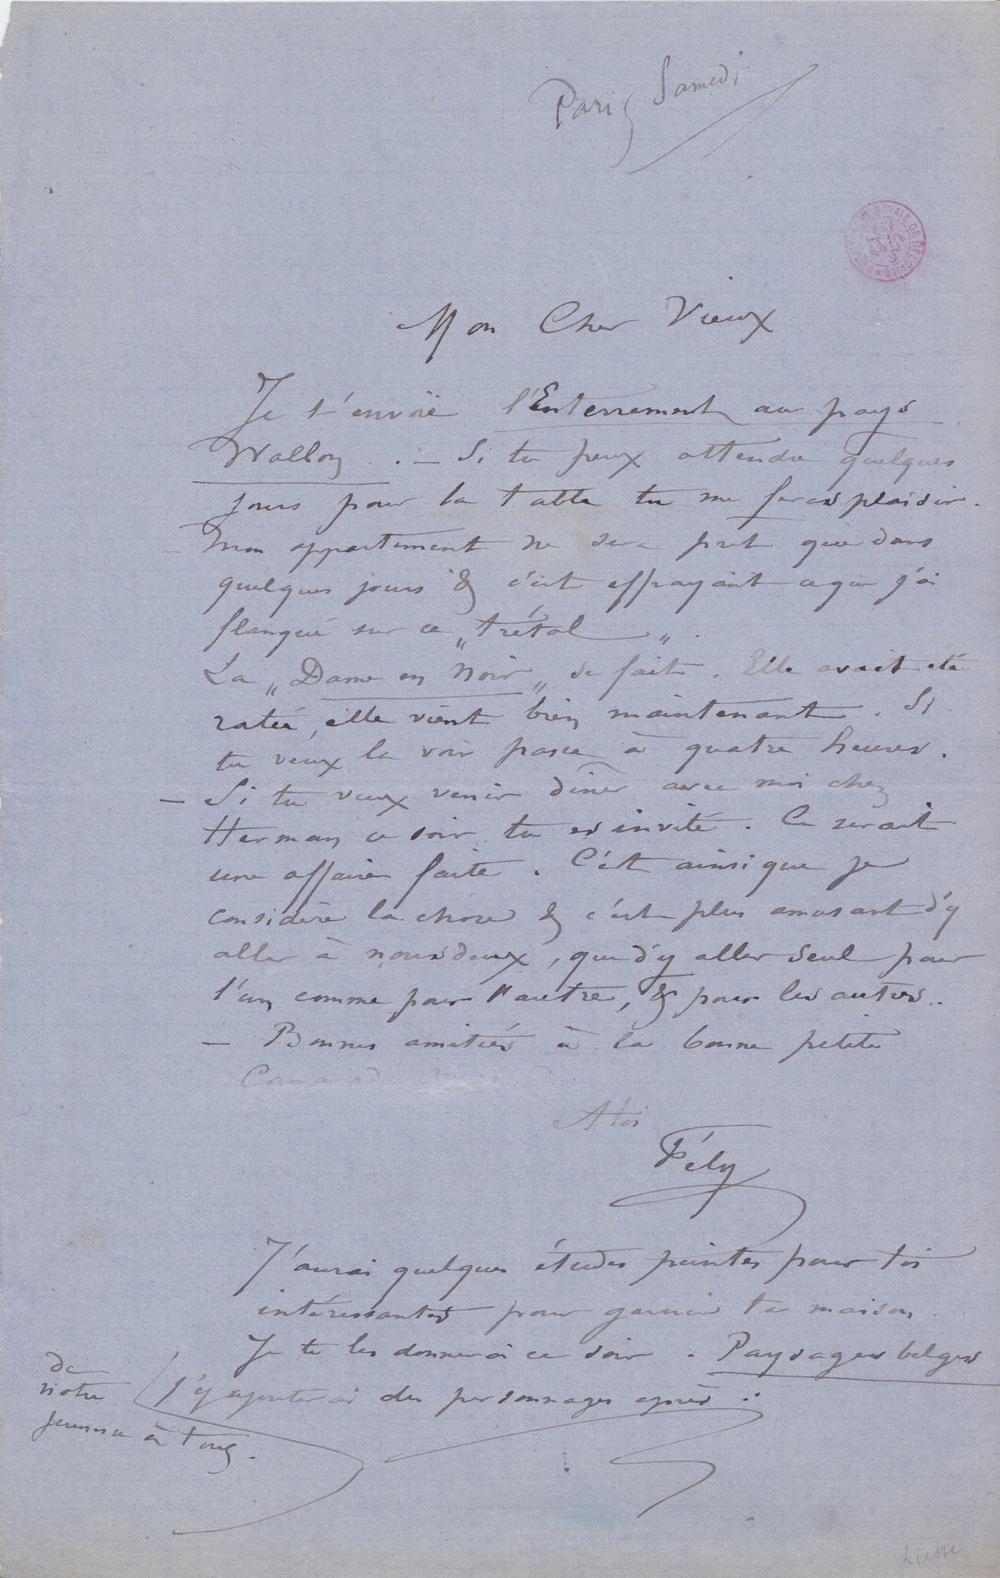 Paris Samedi
Mon Cher Vieux
Je t'envoie l'Enterrement au pays
Wallon . — Si tu peux attendre quelques
jours pour la table tu me feras plaisir.
— Mon appartement ne sera pret que dans
quelques jours & c'est effrayant ce que j'ai
flanqué sur ce „trétal„.
La „Dame en Noir„ se fait. Elle avait été
ratée, elle vient bien maintenant. Si
tu veux la voir passe à quatre heures.
— Si tu veux venir diner avec moi chez
Herman ce soir tu es invité. Ce serait
une affaire faite. C'est ainsi que je
considère la chose & c'est plus amusant d'y
aller à nous deux, que d'y aller seul pour
l'un comme pour l'autre, & pour les autres.
— Bonnes amitiés à la bonne petite
Camarade
A toi
Fély
J'aurai quelques études peintes pour toi
intéressantes pour garnir ta maison.
Je te les donnerai ce soir. Paysages belges
J'y ajouterai des personnages après :
de
notre
jeunesse à tous.